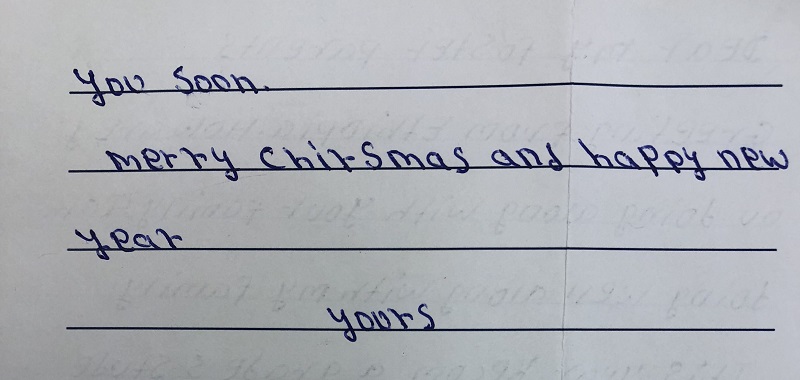 you soon.
merry chirsmas and happy new
year
yours